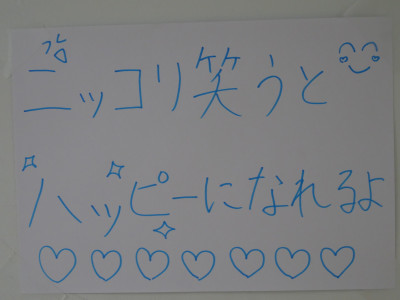 ニッコリ笑うと
ハッピーになれるよ